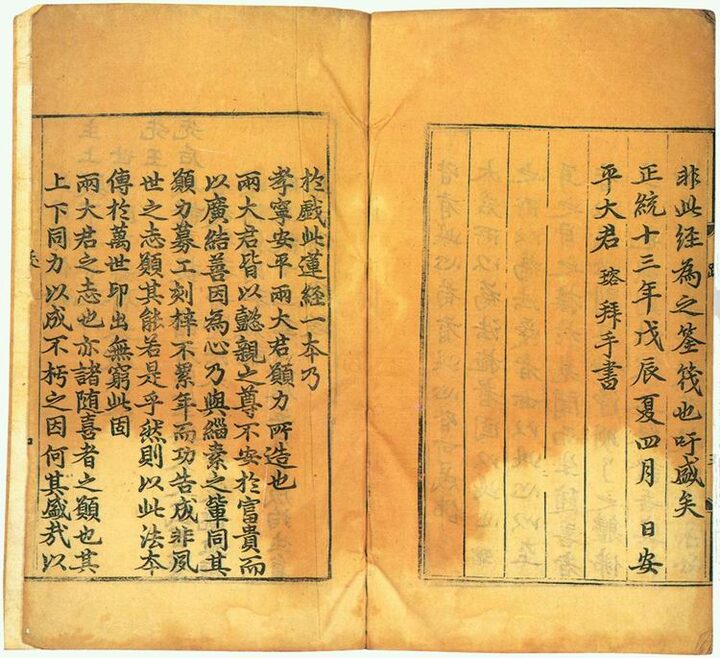 非此経為之筌筏也吁盛矣
正統十三年戊辰夏四月 日安
平大君 瑢 拜手書
於戲此蓮經一本乃
孝寧安平兩大君願力所造也
兩大君皆以懿親之尊不安於富貴而
以廣結善因為心乃與緇素之輩同其
願力募工刻梓不累年而功告成非夙
世之志願其能若是乎然則以此法本
傳於萬世印出無窮此固
兩大君之志也亦諸随喜者之願也其
上下同力以成不朽之因何其盛哉以